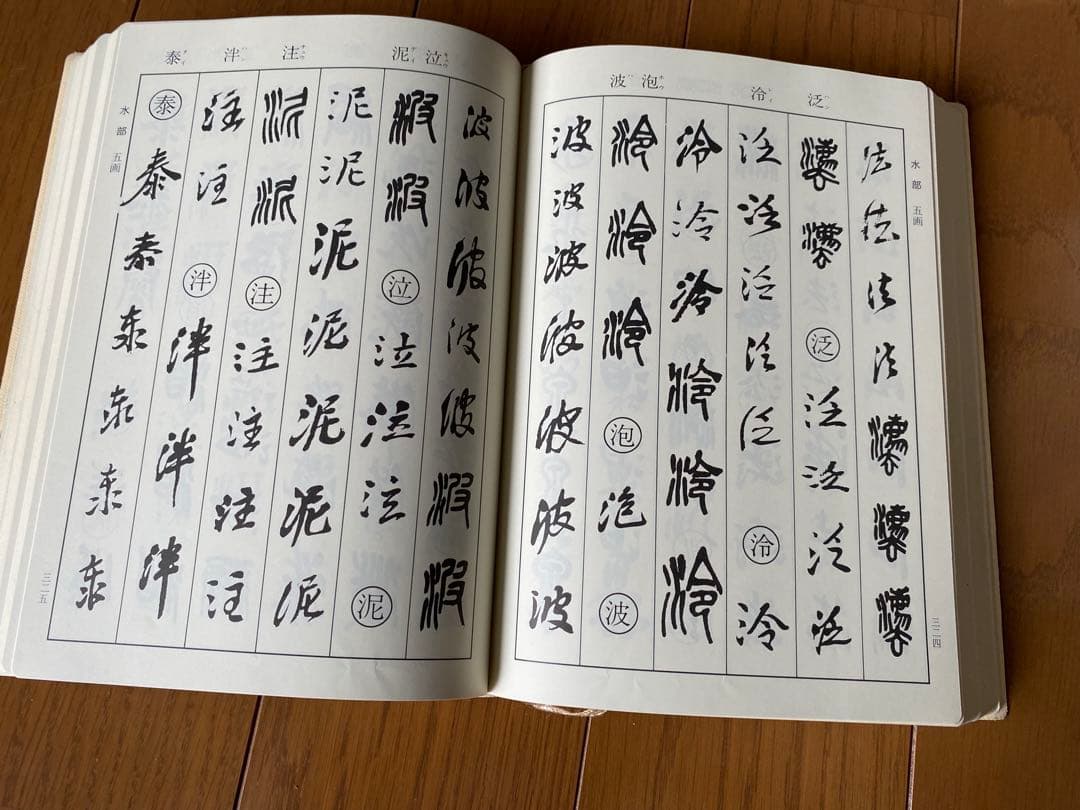 泛 泠 泡 波
水部 五画
法法法法灋灋灋
灋灋泛泛泛泛泛
泛泛泛泛泛泠泠
泠泠泠泠泠泠
泠泠泠泡泡波
波波波波波波波
三二四
泣 泥 注 泮 泰
波波波波波波波
波波泣泣泣泣泥
泥泥泥泥泥泥泥
泥泥注注注注注
注注泮泮泮泮
泰泰泰泰泰泰泰
水部 五画
三二五